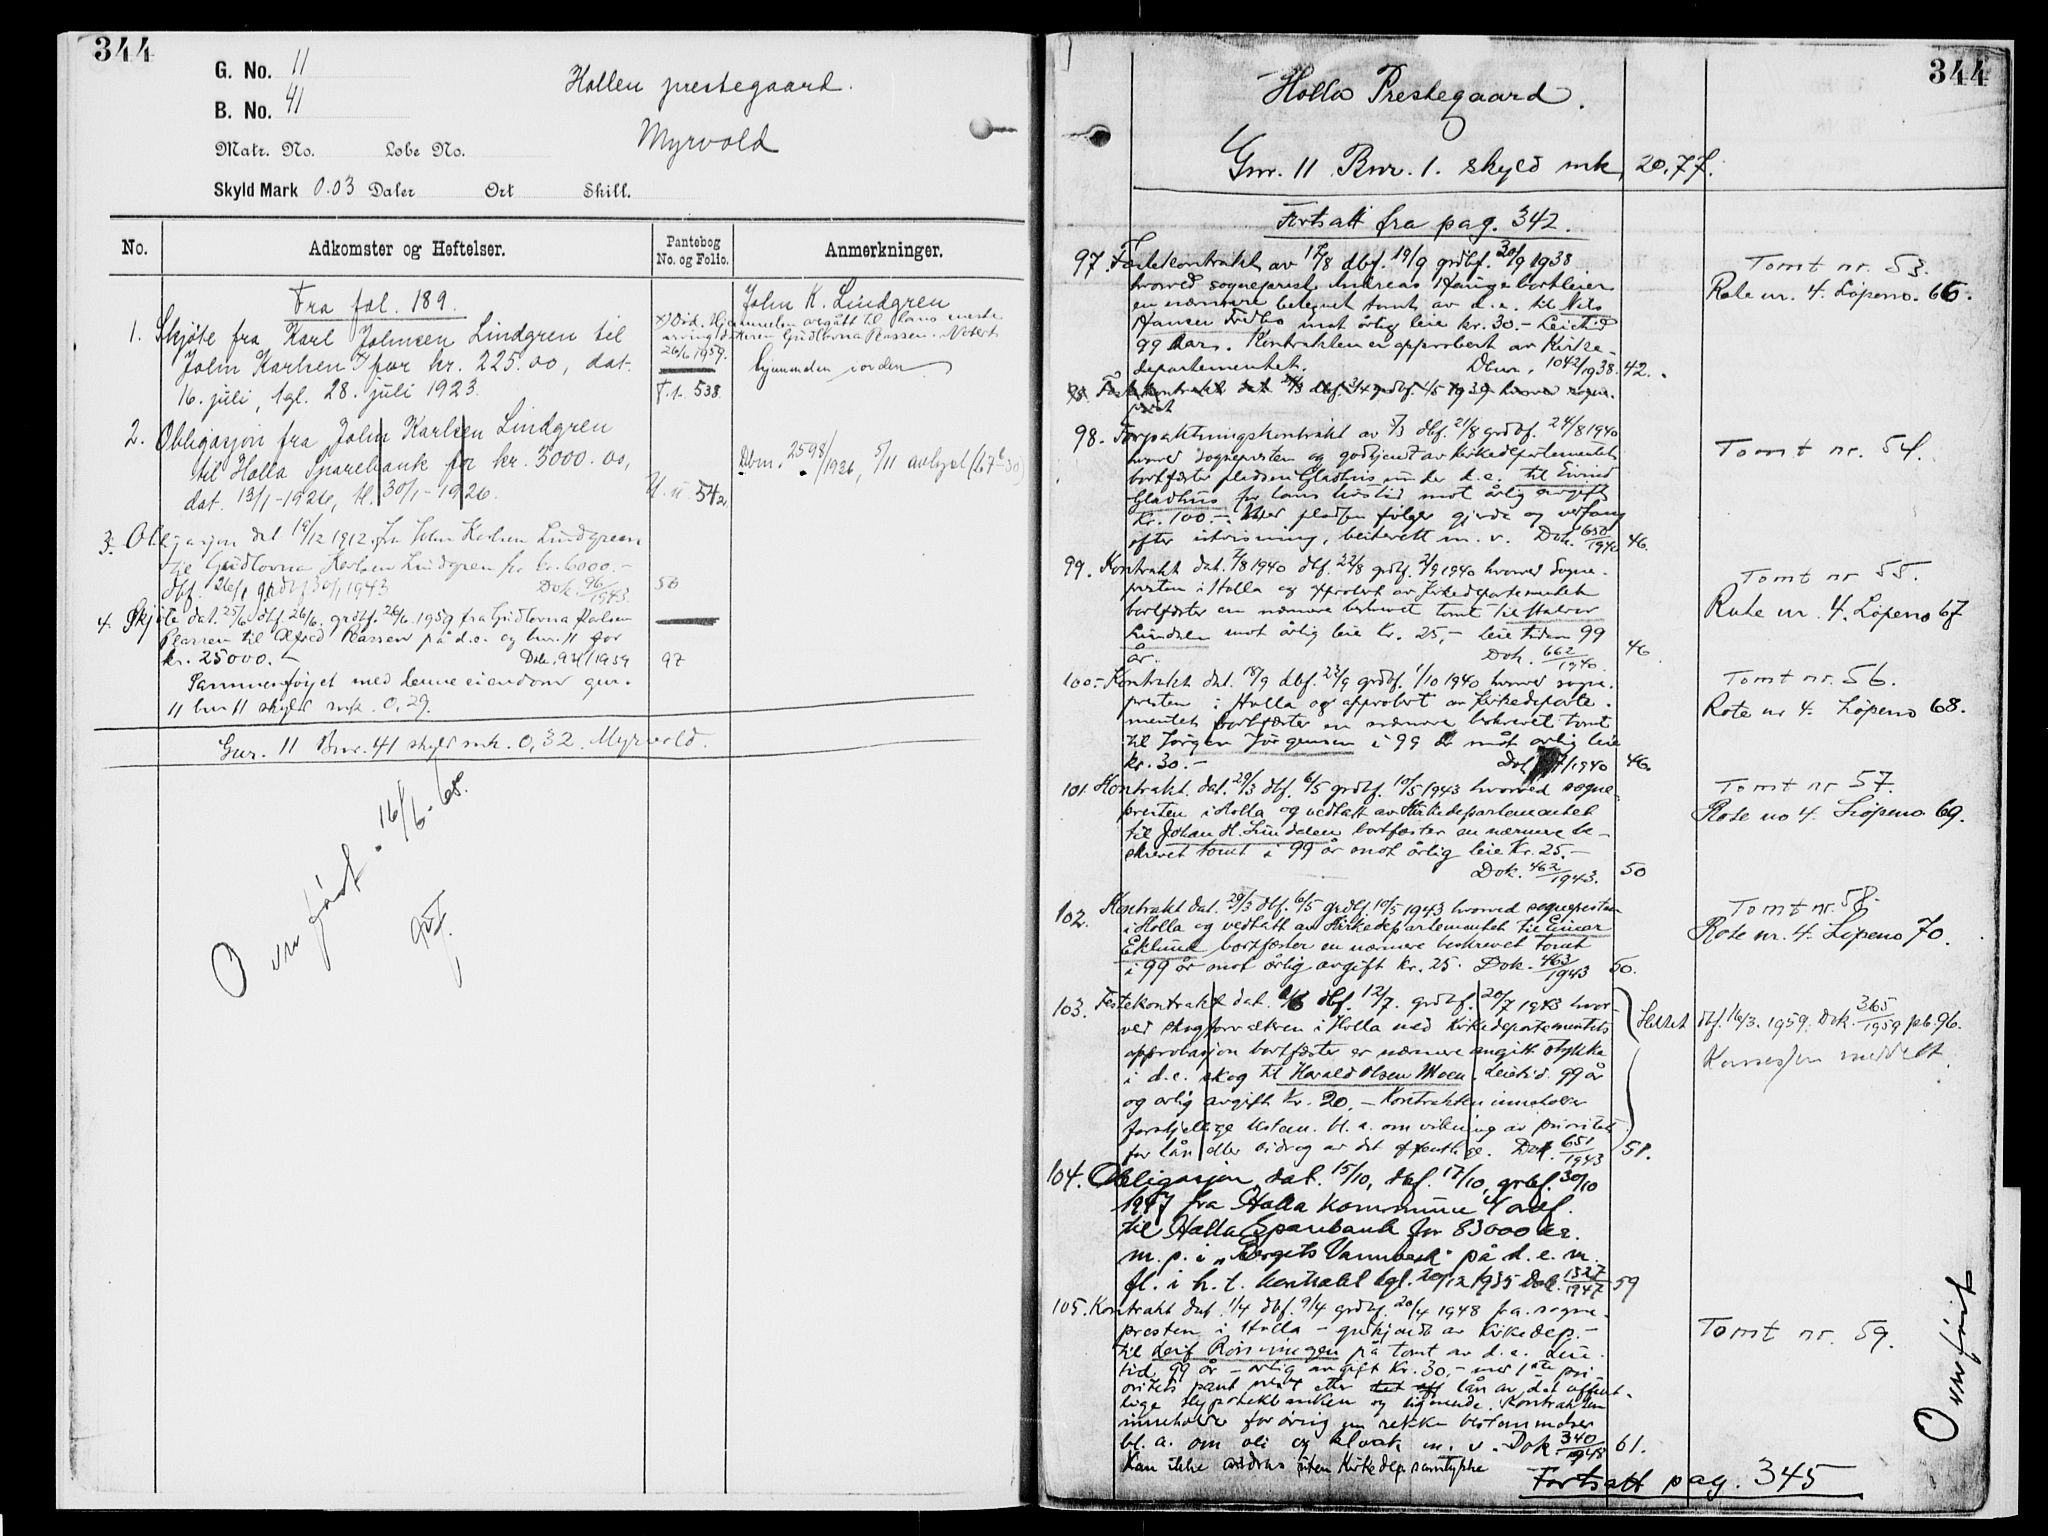 344
G. No. 11
B. No. 41
Hollen prestegaard.
Myrvold
Matr. No. Løbe No.
Skyld Mark 0.03 Daler Ort Skill.
No. Adkomster og Heftelser. Pantebog No. og Folio. Anmerkninger.
Fra fol. 189.
1. Skjøte fra Karl Johnsen Lindgren til
John Karlsen x) for kr. 225.00, dat.
16. juli, tgl. 28. juli 1923.
F.1. 538
John K. Lindgren
x) Død. Hjemmelen overgått til hans eneste
arving datteren Gudlovna Plassen. Notert
26/6 1959.
hjemmelen i orden
2. Obligasjon fra John Karlsen Lindgren
til Holla Sparebank for kr. 3000.00,
dat. 13/1-1926, tl. 30/1-1926.
542
Dbnr. 2598/1926, 5/11 avlyst
3. Obligasjon dat 19/12 1912 fra John Karlsen Lindgreen
til Gudlovna Karlsen Lindgren for kr. 6000.-
dbf. 26/1 grdbf 30/1 1943 Dok. 96/1943.
50
4. Skjøte dat. 25/6 dbf. 26/6. grdbf. 26/6. 1959 fra Gudlovna Karlsen
Plassen til Alfred Plassen på d.e. og bnr. 11 for
kr. 25000.- Dok. 921/1959
97
Sammenføyet med denne eiendom gnr.
11 bnr 11 skyld mk. 0,29.
Gnr. 11 Bnr. 41 skyld mk. 0,32. Myrvold.
Overført. 16/6-68.
344
Holla Prestegaard.
Gnr. 11 Bnr. 1. skyld mk. 20,77.
Fortsatt fra pag. 342.
97. Festekontrakt av 17/8 dbf. 19/9 grdbf. 30/9 1938
hvorved sogneprest Andreas Hauge bortleier
en nærmere betegnet tomt av d.e. til Nils
Hansen mot årlig leie kr. 30.- Leietid
99 aar. Kontrakten er approbert av Kirke-
departementet. Dbnr. 1042/1938. 42.
Tomt nr. 53.
Rote nr. 4. Løpeno. 66.
98. Forpaktningskontrakt av 7/3 dbf. 21/8 grdbf. 24/8 1940
hvorved sognepresten og godkjendt av Kirkedepartementet
bortfester pladsen Gladhus under d.e. til Eivind
Gladhus for hans livstid mot årlig avgift
kr. 100.-. Med pladsen følger gjerde og vedfang
efter utvisning, beiterett m.v. Dok. 650/1940 46.
Tomt nr. 54.
99. Kontrakt dat. 7/8 1940 dbf. 22/8 grdbf. 2/9 1940 hvorved Sogne-
presten i Holla og approbert av Kirkedepartementet
bortfester en nærmere beskrevet tomt til Halvor
Lindalen mot årlig leie Kr. 25,- leietiden 99
år. Dok. 662/1940. 46.
Tomt nr 55.
Rote nr. 4. Løpeno 67
100.- Kontrakt dat. 18/9 dbf. 23/9 grdbf. 1/10 1940 hvorved sogne-
presten i Holla og approbert av Kirkedeparte-
mentet bortfester en nærmere beskrevet tomt
til Jørgen Jørgensen i 99 år mot årlig leie
kr. 30.- Dok /1940 46.
Tomt nr. 56.
Rote nr 4. Løpeno 68.
101. Kontrakt dat. 29/3 dbf. 6/5 grdbf. 10/5 1943 hvorved sogne-
presten i Holla og vedtatt av Kirkedepartementet
til Johan H. Lindalen bortfester en nærmere be-
skrevet tomt i 99 år mot årlig leie Kr. 25.-
Dok. 462/1943. 50
Tomt nr 57.
Rote no 4. Løpeno 69.
102. Kontrakt dat. 29/3 dbf. 6/5 grdbf. 10/5 1943 hvorved sognepresten
i Holla og vedtatt av Kirkedepartementet til Einar
Eklund bortfester en nærmere beskrevet tomt
i 99 år mot årlig avgift kr. 25. Dok. 463/1943 50.
Tomt nr. 58.
Rote nr. 4. Løpeno 70.
103. Festekontrakt dat. dbf. 12/7. grdbf. 20/7 1943 hvor-
ved skogforvalteren i Holla med Kirkedepartementets
approbasjon bortfester et nærmere angitt stykke
i d.e. skog til Harald Olsen Moen. Leietid. 99 år
og årlig avgift Kr. 20.- Kontrakten inneholder
forskjellige bl.a. om vikning av prioritet
for lån eller bidrag av det offentlige. Dok. 651/1943 51.
Slettet dbf. 16/3. 1959. Dok. 365/1959 pb. 96.
104. Obligasjon dat. 15/10, dbf. 17/10, grbf. 30/10
1947 fra Holla Kommune v/ordf.
til Holla Sparebank for 83000 kr.
m.p. i på d.e. m.
fl. i h.t. kontrakt tgl. 20/12 1935 Dok. 1327/1947 59
105. Kontrakt dat. 1/4 dbf. 9/4 grdbf. 20/4 1948 fra sogne-
presten i Holla - godkjendt av Kirkedep.-
til Leif Rønningen på tomt av d.e. Leie-
tid 99 år - årlig avgift Kr. 30.- med 1ste pri-
oritets pant efter lån av det offent-
lige Hypotekbanken og lignende. Kontrakten
inneholder forøvrig en rekke bestemmelser
bl.a. om vei og kloak m.v. Dok. 340/1948 61.
Kan ikke endres uten Kirkedep. samtykke
Tomt nr. 59.
Overført
Fortsatt pag. 345